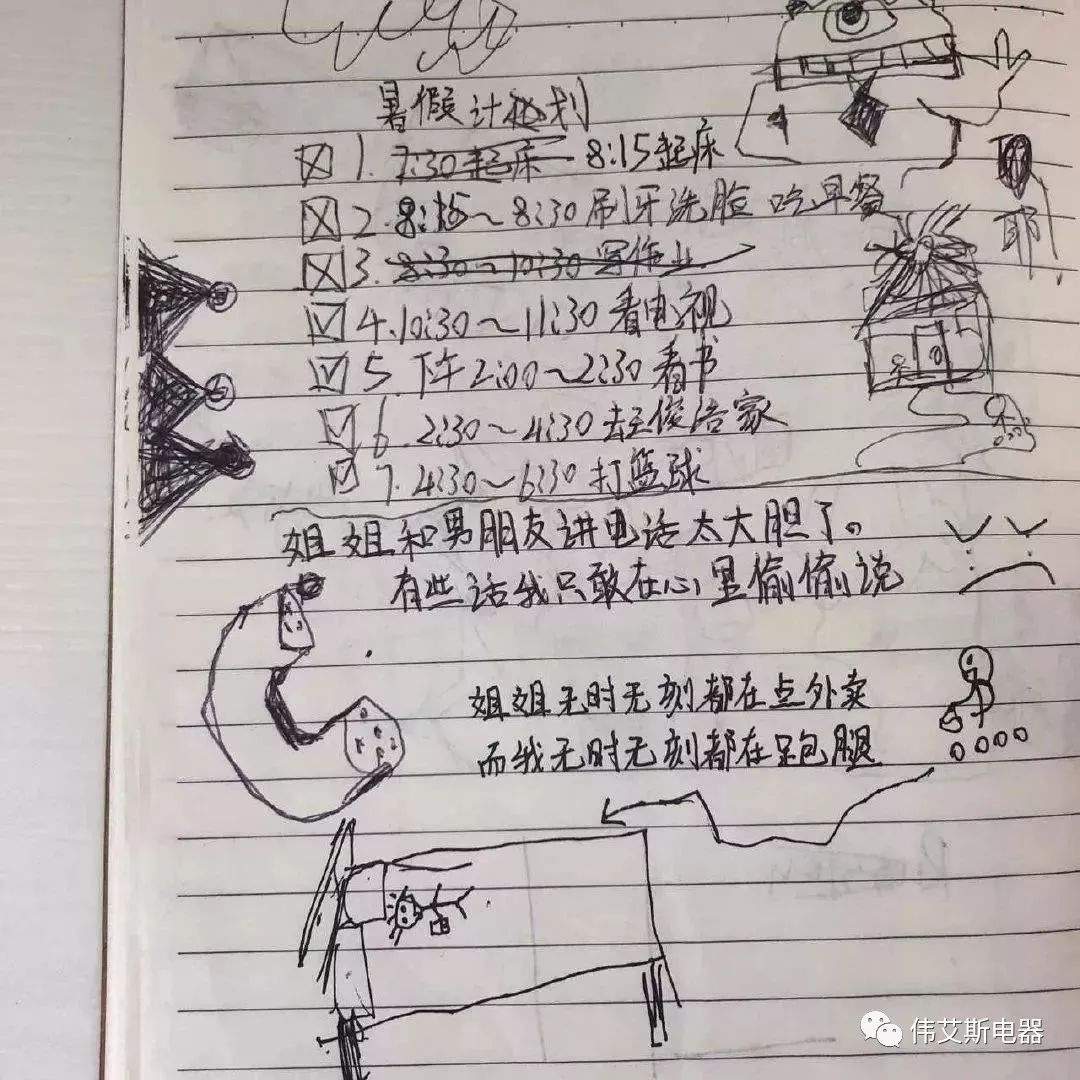 暑假计划
1. 7:30起床 8:15起床
2. 8:15～8:30刷牙洗脸 吃早餐
3. 8:30～10:30写作业
4. 10:30～11:30看电视
5. 下午2:00～2:30看书
6. 2:30～4:30去王俊浩家
7. 4:30～6:30打篮球
耶!
姐姐和男朋友讲电话太大胆了。
有些话我只敢在心里偷偷说
姐姐无时无刻都在点外卖
而我无时无刻都在跑腿
伟艾斯电器